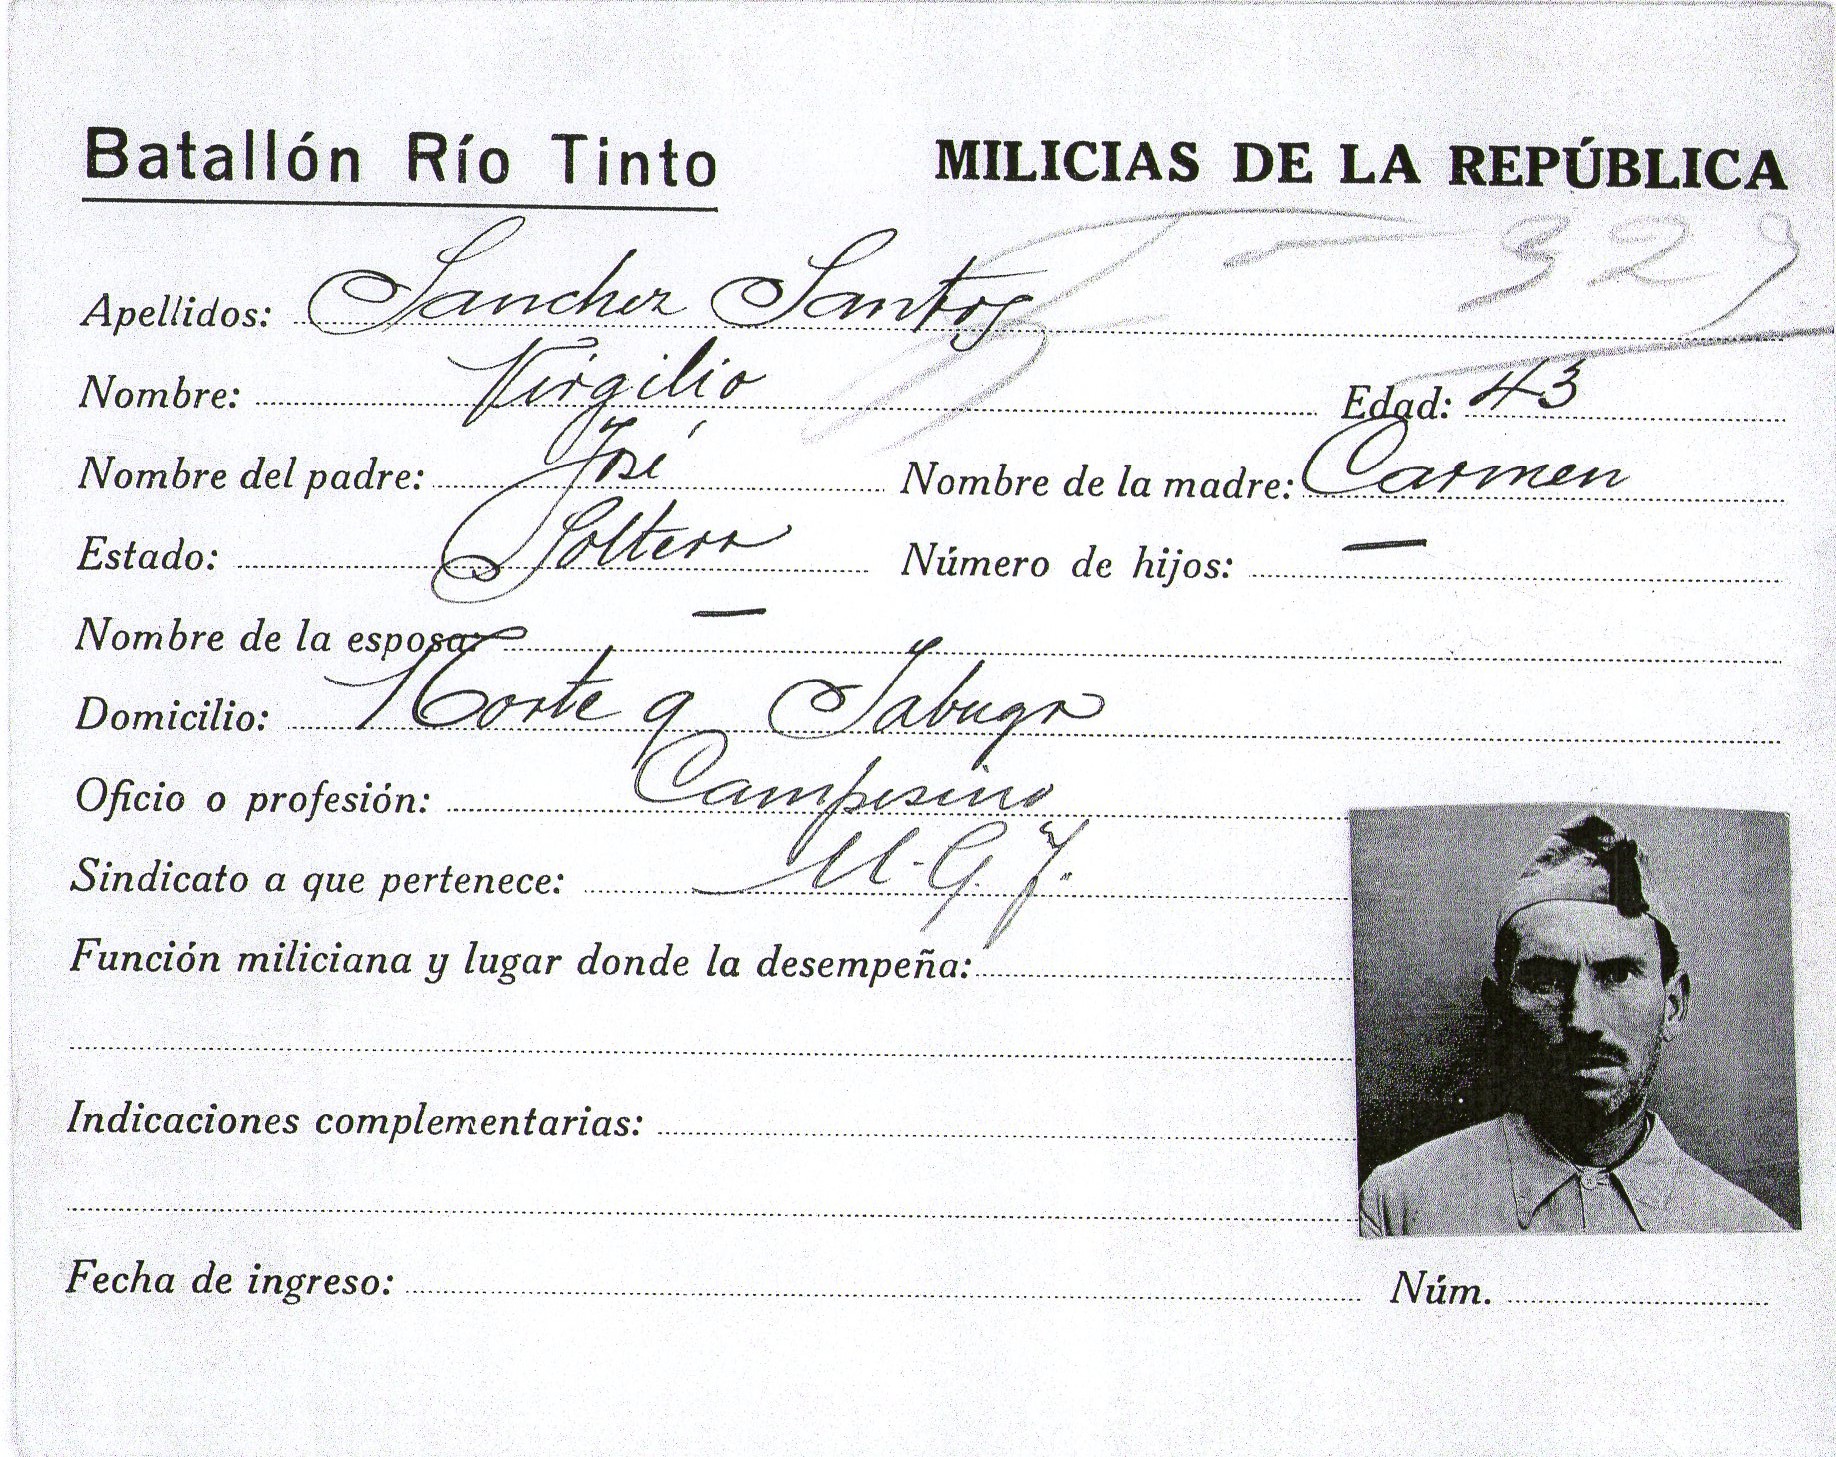 Batallón Río Tinto MILICIAS DE LA REPÚBLICA
S - 329
Apellidos: Sanchez Santos
Nombre: Virgilio Edad: 43
Nombre del padre: José Nombre de la madre: Carmen
Estado: Soltero Número de hijos: —
Nombre de la esposa: —
Domicilio: Norte 9 Jabugo
Oficio o profesión: Campesino
Sindicato a que pertenece: U.G.T.
Función miliciana y lugar donde la desempeña:
Indicaciones complementarias:
Fecha de ingreso: Núm.